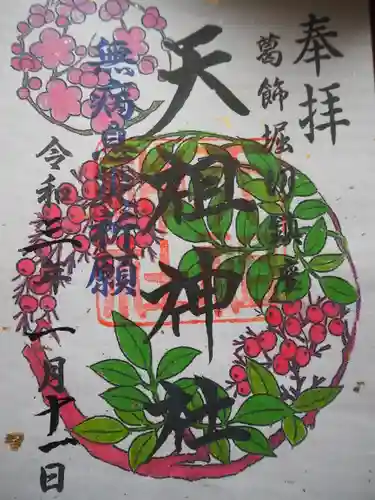 奉拝
葛飾堀切鎮座
天祖神社
無病息災祈願
令和三年一月十一日